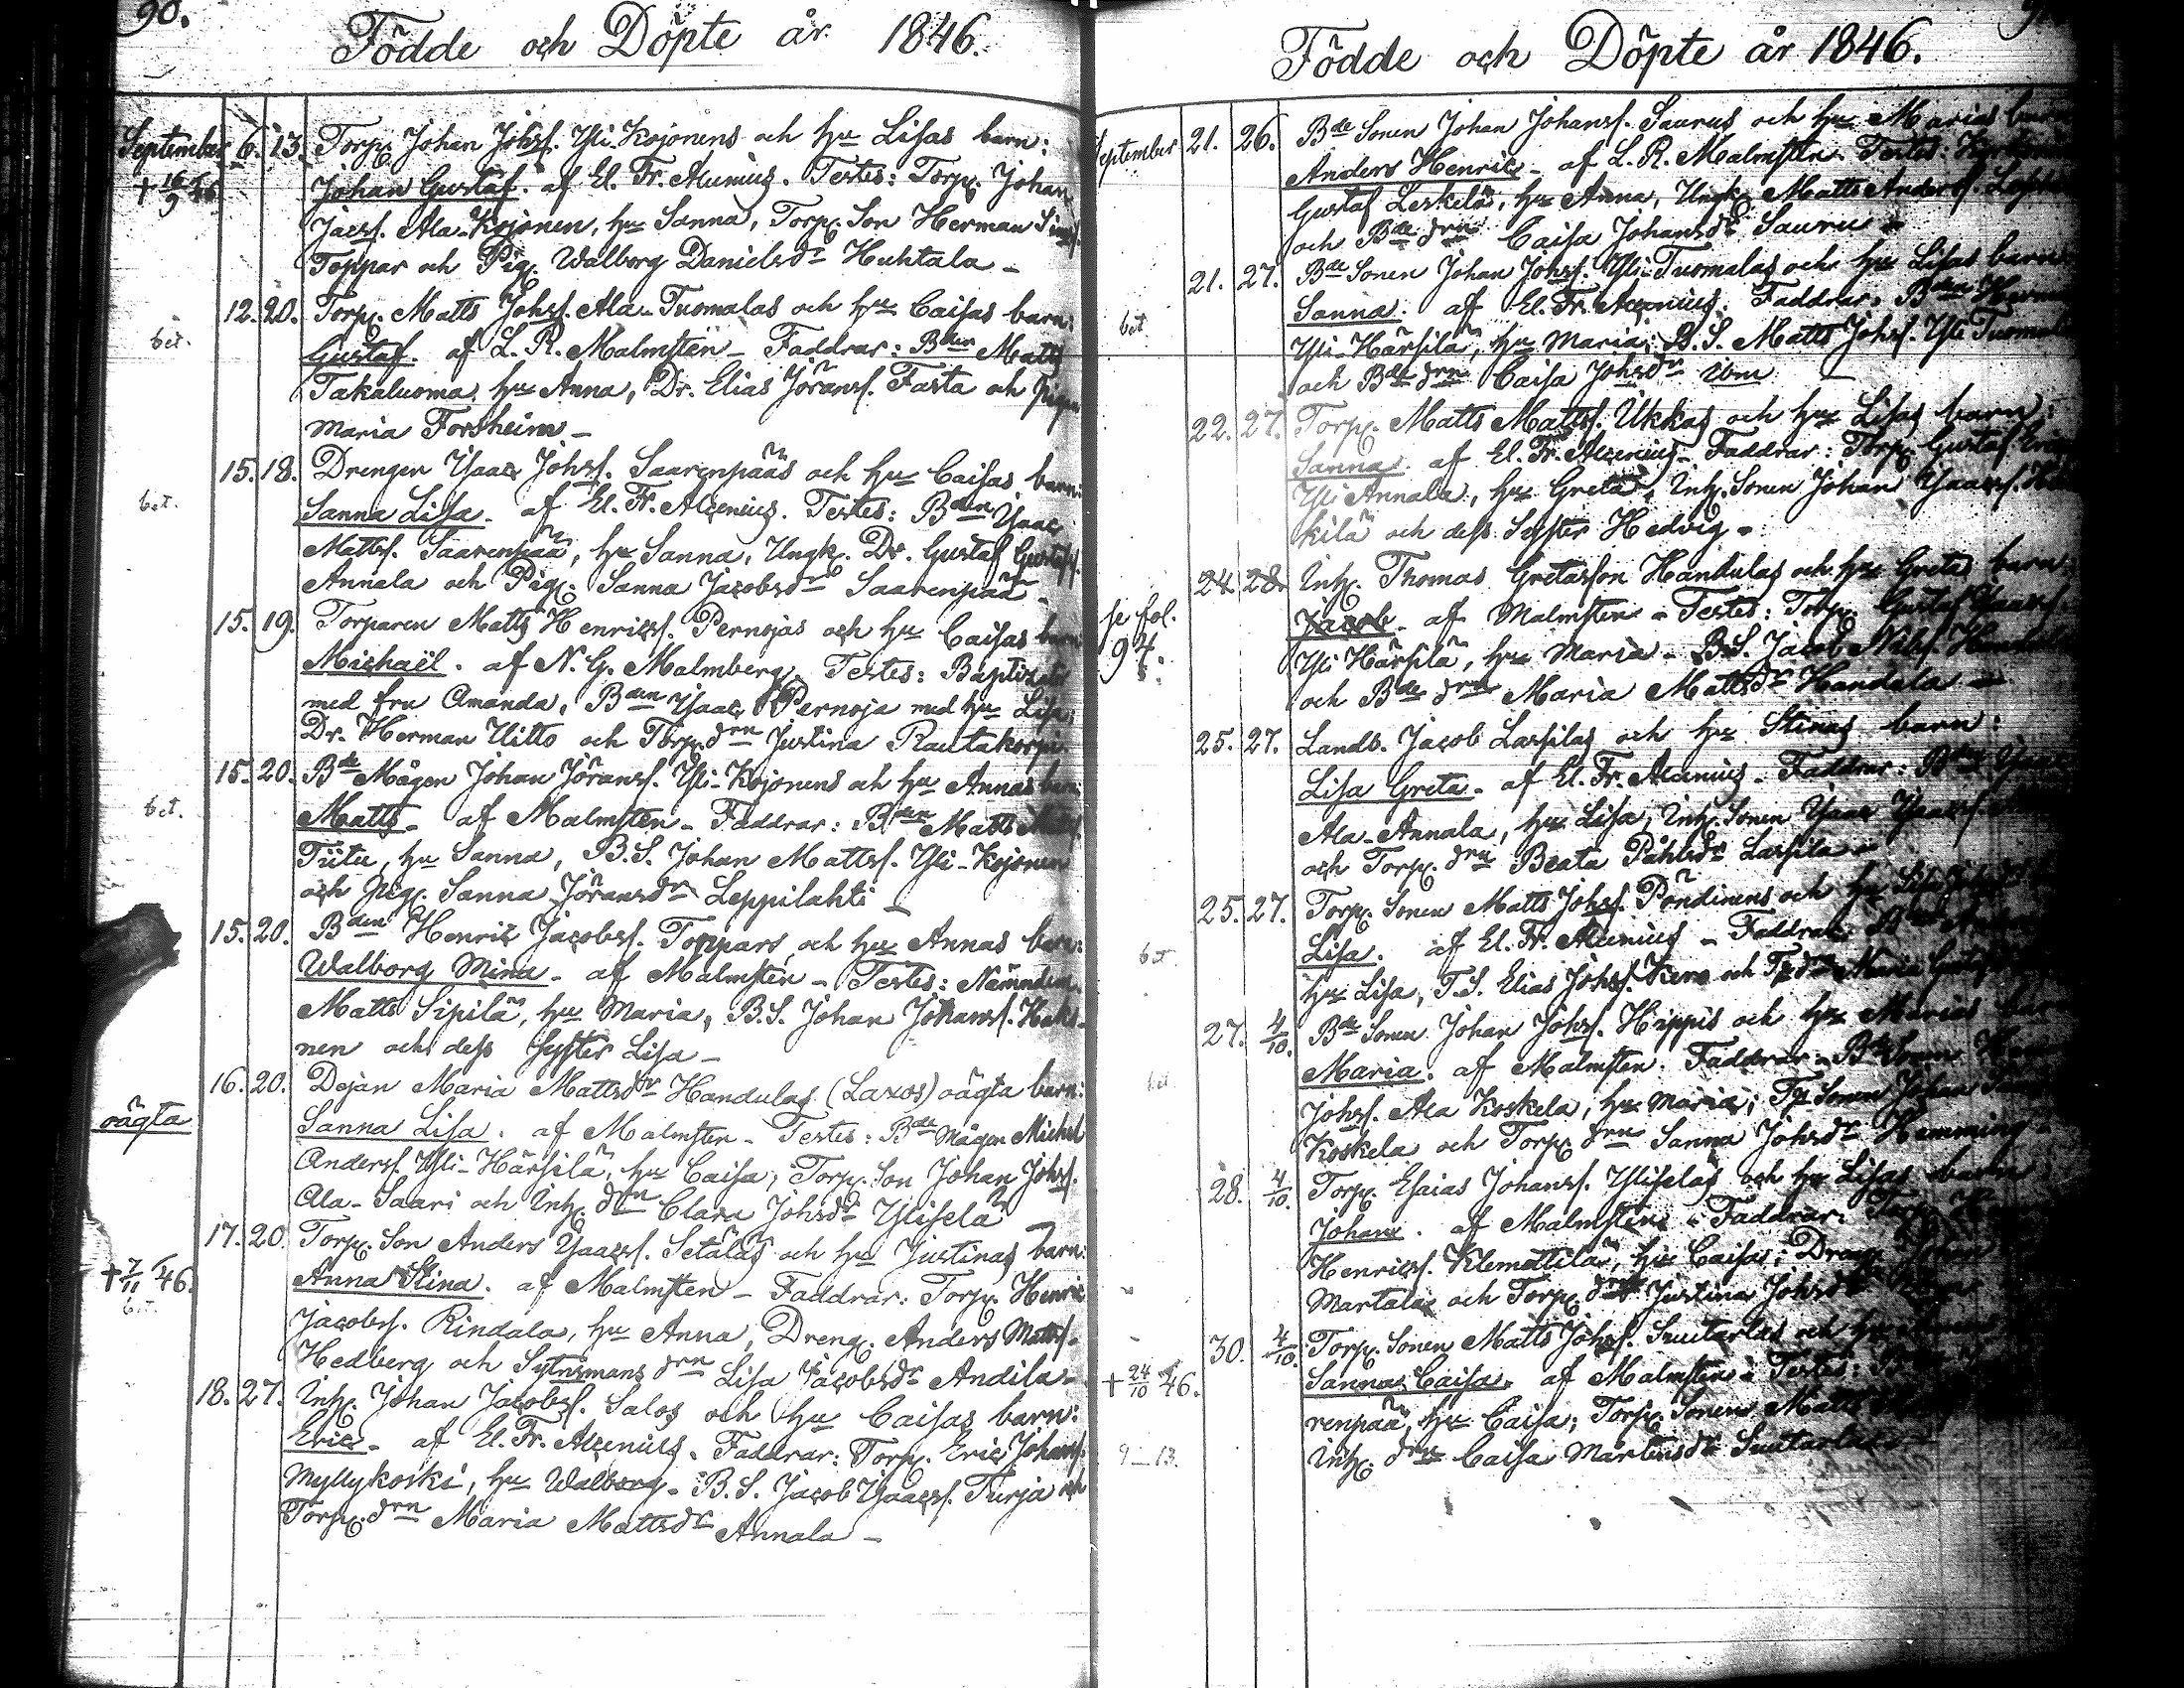 90.
Födde och Döpte år 1846.
September 6. 13. Torp. Johan Johsf. Yli-Kojonens och hu Lisas barn:
† 16/9 46 Johan Gustaf. af El. Fr. Alcenius. Testes: Torp. Johan
Jacsf. Ala-Kojonen, hu Sanna, Torp. Son Herman
Toppar och Pig. Walborg Danielsdr Huhtala –
12. 20. Torp. Matts Johsf. Ala-Tuomalas och hu Caisas barn:
bet. Gustaf. af L. R. Malmsten – Faddrar: Bden Matts
Takaluoma, hu Anna, Dr. Elias Joransf. Fasta och Pigan
Maria Forsheim –
15. 18. Drengen Ysaac Johsf. Saarenpääs och hu Caisas barn:
bet. Sanna Lisa. af El. Fr. Alcenius. Testes: Bden Ysaac
Mattsf. Saarenpää, hu Sanna, Ungk. Dr. Gustaf Gustafsf.
Annala och Pig. Sanna Jacobsdr Saarenpää –
15. 19. Torparen Matts Henricsf. Pernojas och hu Caisas barn
Michaël. af N. G. Malmberg. Testes: Baptizator
med fru Amanda, Bden Ysaac Pernoja med hu Lisa,
Dr. Herman Uitto och Torp. drn Justina Rautakorpi.
15. 20. Bde Mågen Johan Joransf. Yli-Kojonens och hu Annas barn:
bet. Matts. af Malmsten – Faddrar: Bden Matts
Tiitu, hu Sanna, B.S. Johan Mattsf. Yli-Kojonen
och Pig. Sanna Joransdr Leppilahti –
15. 20. Bden Henric Jacobsf. Toppars och hu Annas barn:
Walborg Mina – af Malmsten – Testes: Nämndem.
Matts Sipilä, hu Maria, B.S. Johan Johansf. Hako-
nen och dess syster Lisa –
16. 20. Dejan Maria Mattsdr Handulas (Laxos) oägta barn:
oägta Sanna Lisa. af Malmsten – Testes: Bde Mågen Michel
Andersf. Yli-Härsilä, hu Caisa, Torp. Son Johan Johsf.
Ala-Saari och Inh. drn Clara Johsdr Ylisela –
17. 20. Torp. Son Anders Ysacsf. Setäläs och hu Justinas barn:
† 7/11 46. Anna Stina. af Malmsten – Faddrar: Torp. Henric
bet. Jacobsf. Rindala, hu Anna, Dreng. Anders Mattsf.
Hedberg och Sytnismans drn Lisa Jacobsdr Andila –
18. 27. Inh. Johan Jacobsf. Salos och hu Caisas barn:
Eric – af El. Fr. Alcenius. Faddrar: Torp. Eric Johansf.
Myllykoski, hu Walborg – B.S. Jacob Ysaacsf. Turja och
Torp. drn Maria Mattsdr Annala –
Födde och Döpte år 1846.
September 21. 26. Bde Sonen Johan Johansf. Saurus och hu Marias barn
Anders Henric – af L. R. Malmsten. Testes:
Gustaf Leskelä, hu Anna, Ungk. Matts Andersf.
och Bde drn Caisa Johansdr Sauru –
21. 27. Bde Sonen Johan Johsf. Yli-Tuomalas och hu Lisas barn
bet Sanna. af El. Fr. Alcenius. Faddrar. Bden Herm
Yli-Härsilä, hu Maria, B.S. Matts Johsf. Yli Tuomala
och Bde drn Caisa Johsdr ibm –
22. 27. Torp. Matts Mattsf. Ukkas och hu Lisas barn:
Sanna. af El. Fr. Alcenius – Faddrar: Torp. Gustaf
Yli Annala, hu Greta, Inh. Sonen Johan Ysaacsf.
kilä och dess Syster Hedvig –
24 28. Inh. Thomas Gretasson Handulas och hu Gretas barn
se fol. 94. Jacob – af Malmsten – Testes: Torp. Gustaf Ysaacsf.
Yli Härsilä, hu Maria – B.S. Jacob Nilsf.
och Bde drn Maria Mattsdr Handula –
25. 27. Landb. Jacob Lassilas och hu Stinas barn:
Lisa Greta – af El. Fr. Alcenius – Faddrar: Bden
Ala-Annala, hu Lisa, Inh. Sonen Ysaac Ysaacsf.
och Torp. drn Beata Påhlsdr Lassila –
25. 27. Torp. Sonen Matts Johsf. Pöndinens och hu
bet Lisa. af El. Fr. Alcenius – Faddrar:
hu Lisa, T.S. Elias Johsf. Kero och Tp drn Maria
27. 4/10. Bde Sonen Johan Johsf. Hippis och hu Marias
bet Maria. af Malmsten. Faddrar – Bde Sonen
Johsf. Ala Koskela, hu Maria; Tp Sonen Johan
Koskela och Torp. drn Sanna Johsdr Hemming –
28. 4/10. Torp. Esaias Johansf. Yliselas och hu Lisas barn
Johan. af Malmsten – Faddrar: Torp.
Henricsf. Klemettilä, hu Caisa; Dreng Johan
Martala och Torp. drn Justina Johsdr
30. 4/10. Torp. Sonen Matts Johsf. Luutarlas och hu
† 24/10 46. Sanna Caisa. af Malmsten – Testes:
renpää, hu Caisa; Torp. Sonen Matts
9–13. Inh. drn Caisa Mårtensdr